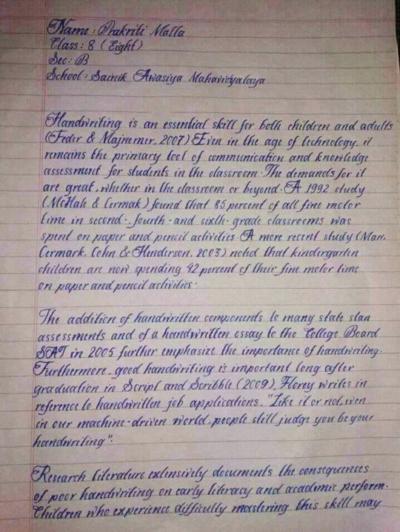 Name : Prakriti Malla
Class : 8 (Eight)
Sec : B
School : Sainik Awasiya Mahavidyalaya
Handwriting is an essential skill for both children and adults
(Feder & Majnemer, 2007) Even in the age of technology, it
remains the primary tool of communication and knowledge
assessment for students in the classroom. The demands for it
are great, whether in the classroom or beyond. A 1992 study
(McHale & Cermak) found that 85 percent of all fine motor
time in second-, fourth- and sixth- grade classrooms was
spent on paper and pencil activities A more recent study (Marr,
Cermark, Cohn & Henderson, 2003) noted that kindergarten
children are now spending 42 percent of their fine motor time
on paper and pencil activities.
The addition of handwritten components to many state stan
assessments and of a handwritten essay to the College Board
SAT in 2005 further emphasize the importance of handwriting.
Furthermore, good handwriting is important long after
graduation in Script and Scribble (2009), Florey writes in
reference to handwritten job applications, "Like it or not, even
in our machine-driven world, people still judge you by your
handwriting".
Research literature extensively documents the consequences
of poor handwriting on early literacy and academic perform-
Children who experience difficulty mastering this skill may